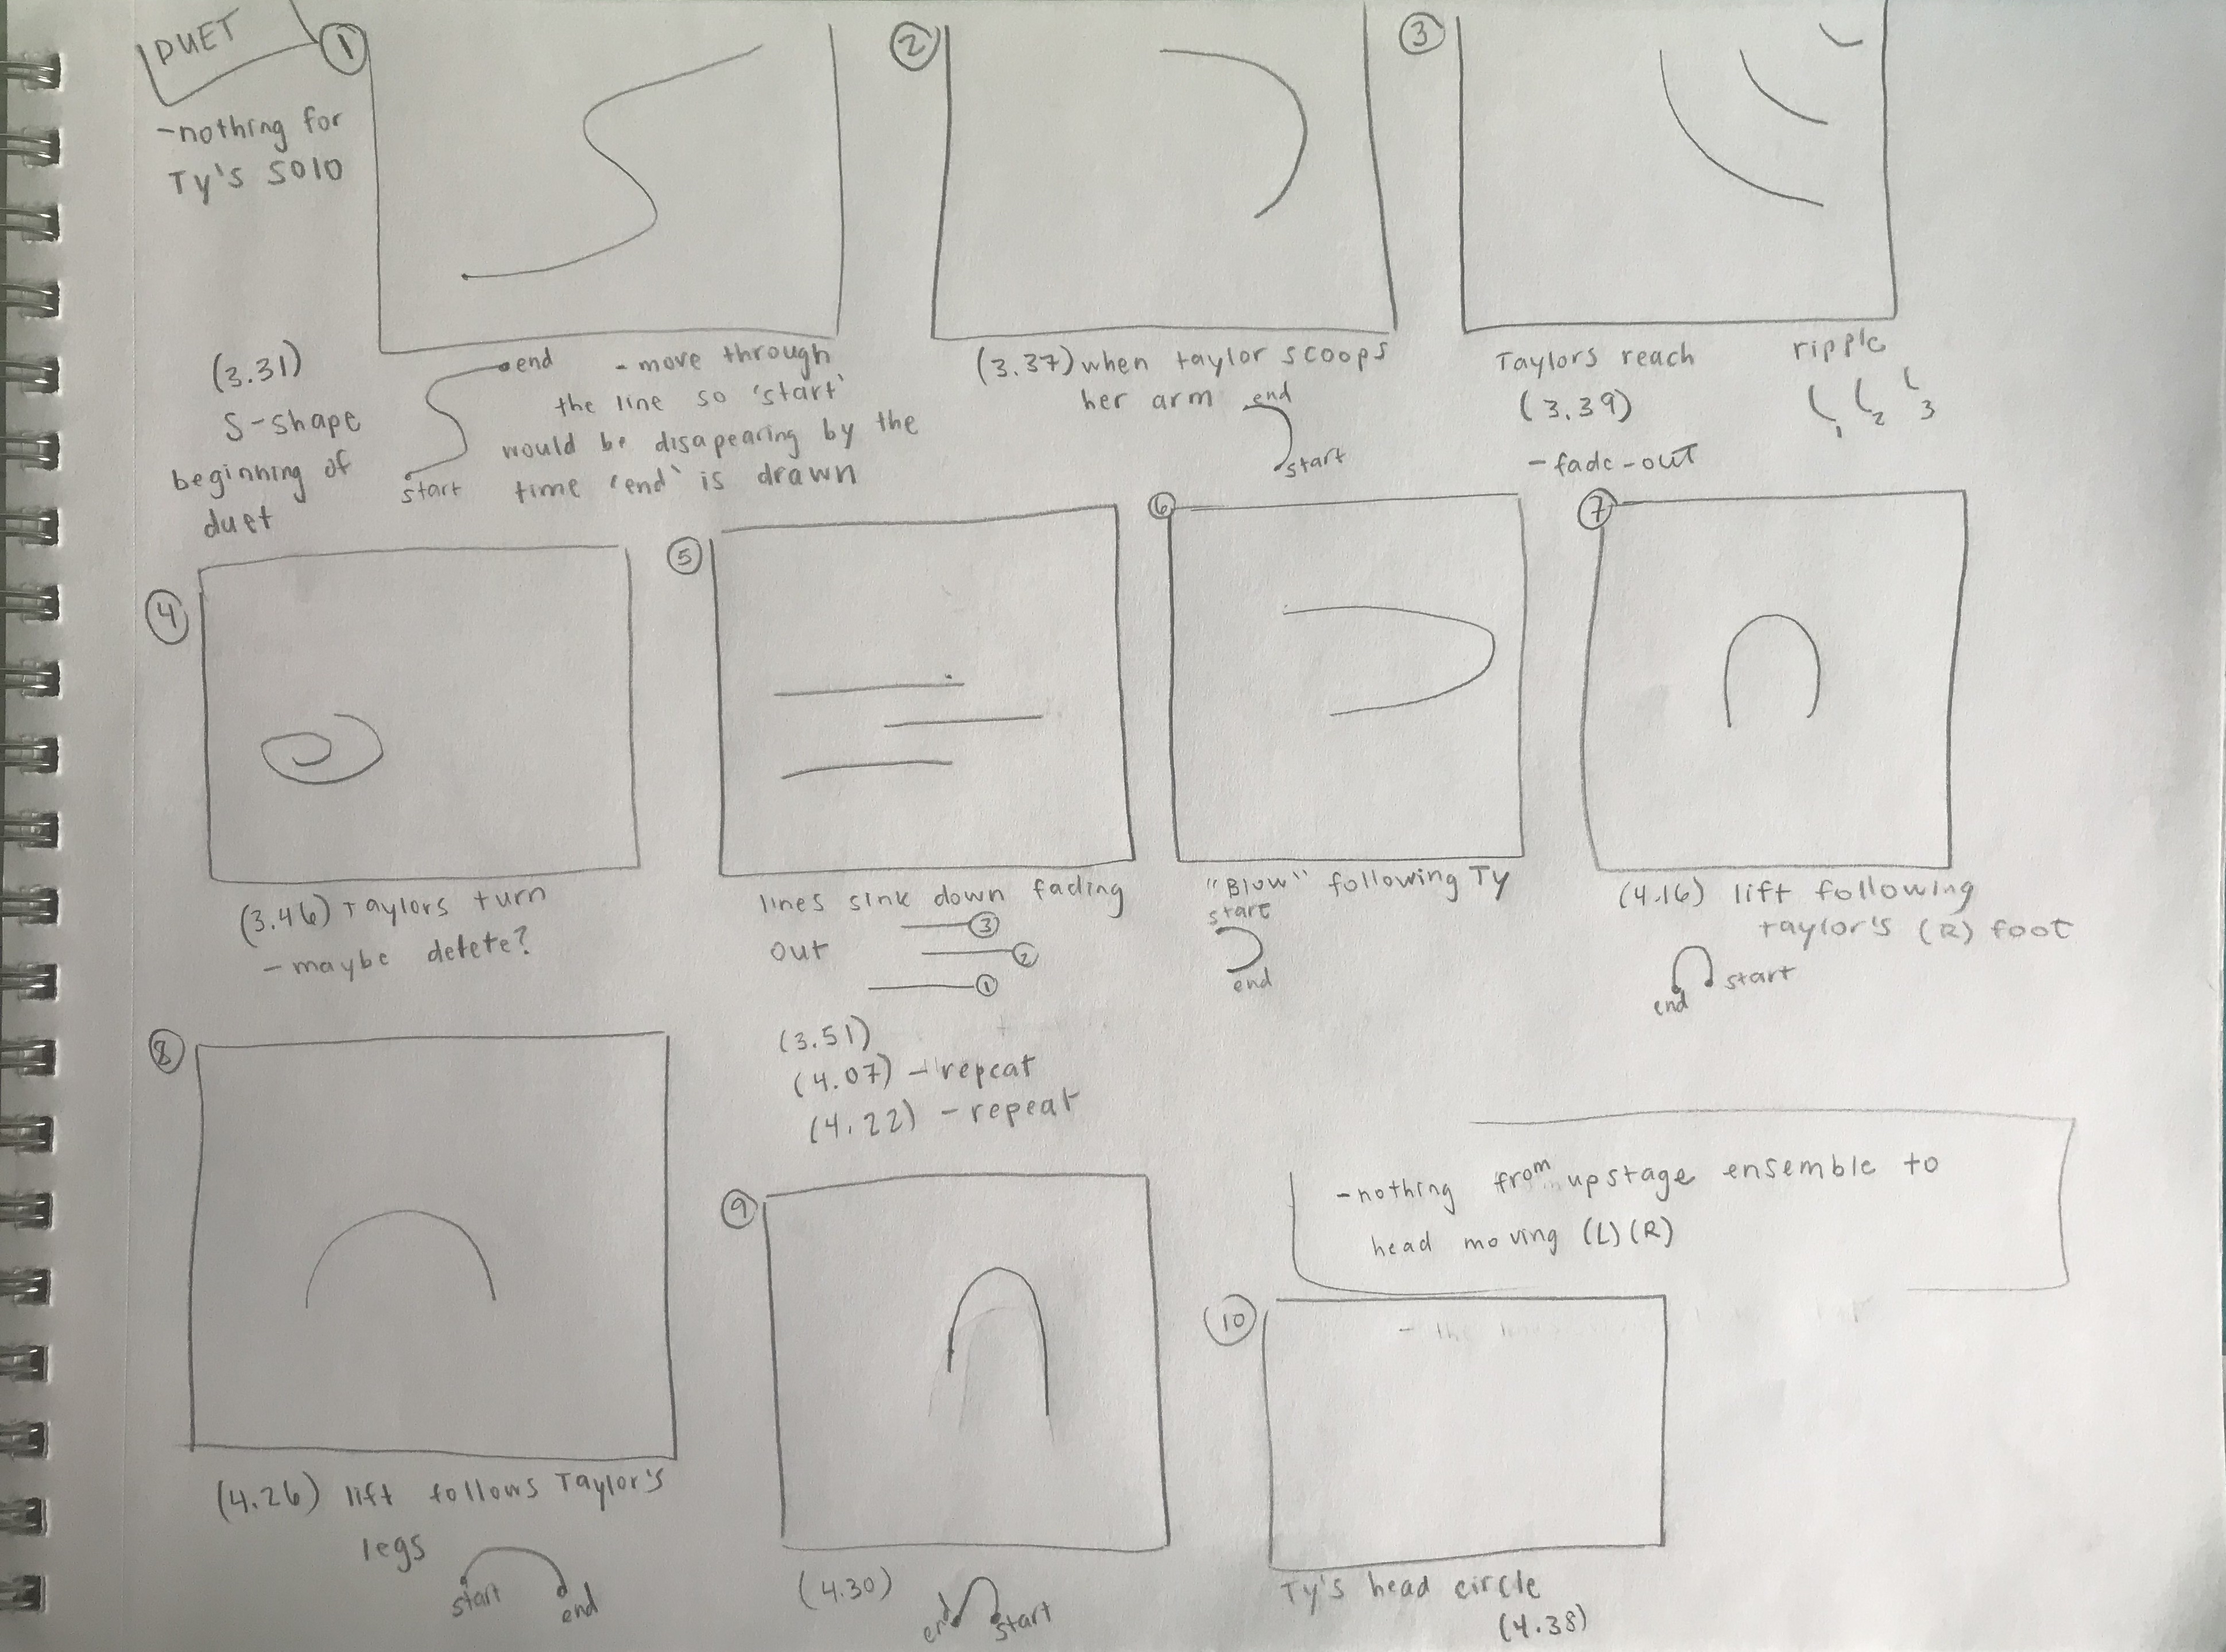 DUET
-nothing for
Ty's solo
1
(3.31)
S-shape
beginning of
duet
end
start
- move through
the line so 'start'
would be disapearing by the
time 'end' is drawn
2
(3.37) when taylor scoops
her arm
end
start
3
Taylors reach
(3.39)
- fade-out
ripple
1 2 3
4
(3.46) Taylors turn
- maybe delete?
5
lines sink down fading
out
3
2
1
(3.51)
(4.07) - repeat
(4.22) - repeat
6
"Blow" following Ty
start
end
7
(4.16) lift following
taylor's (R) foot
start
end
8
(4.26) lift follows Taylor's
legs
start
end
9
(4.30)
end start
-nothing from upstage ensemble to
head moving (L)(R)
10
Ty's head circle
(4.38)